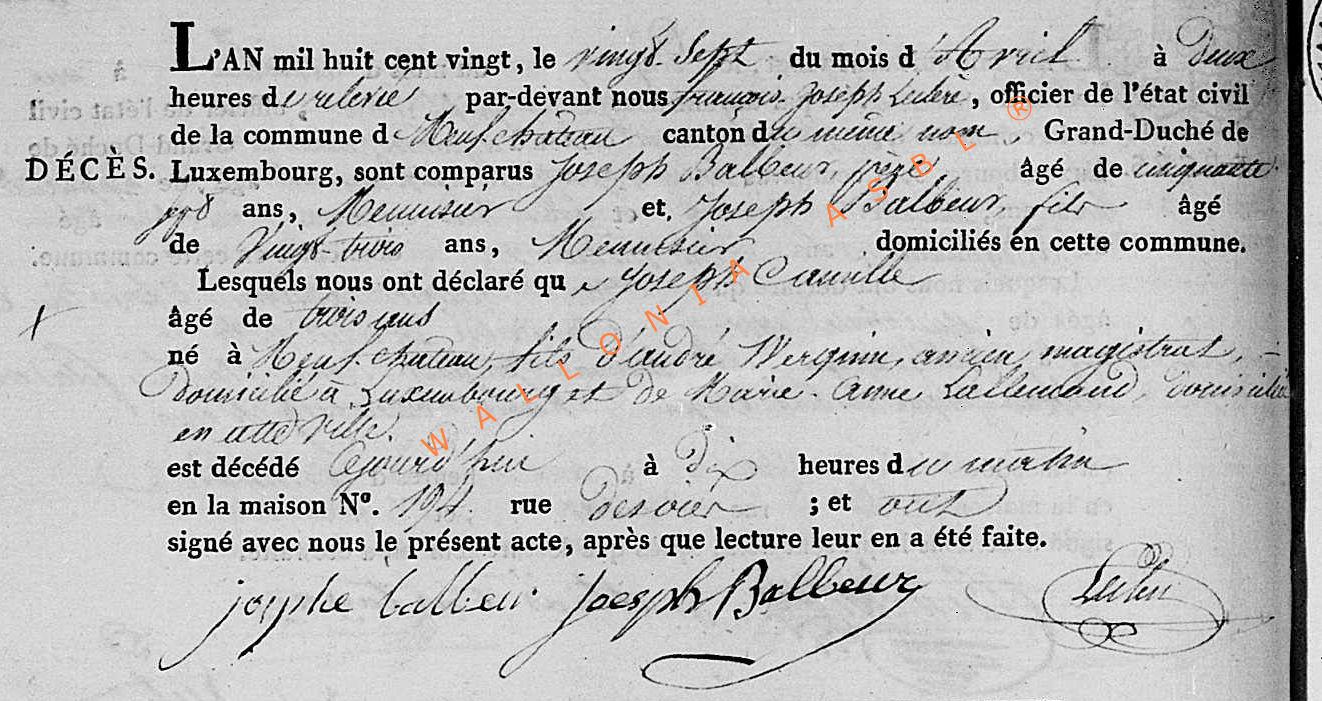 L'AN mil huit cent vingt, le vingt sept du mois d'Avril à Deux
heures de relevée par-devant nous françois Joseph, officier de l'état civil
de la commune d Neufchateau canton du même nom, Grand-Duché de
DÉCÈS. Luxembourg, sont comparus Joseph Balbeur, père âgé de cinquante
ans, Menuisier et, Joseph Balbeur, fils âgé
de Vingt trois ans, Menuisier domiciliés en cette commune.
Lesquels nous ont déclaré que Joseph Camille
âgé de trois ans
né à Neufchateau, fils d'andré Wergnin, ancien magistrat,
Domicilié à Luxembourg et de Marie Anne Lallemand, Domiciliée
en cette Ville.
est décédé à Dix heures du matin
en la maison Nº. 194. rue ; et ont
signé avec nous le présent acte, après que lecture leur en a été faite.
josphe balbeur Joesph Balbeur
WALLONIA ASBL ®